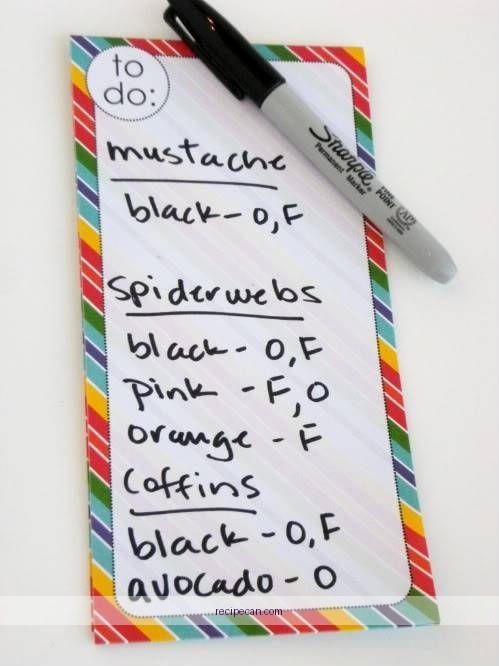 to
do:
mustache
black - O, F
spiderwebs
black - O, F
pink - F, O
orange - F
Coffins
black - O, F
avocado - O
Sharpie
Permanent Marker
FINE
POINT
AP
recipecan.com